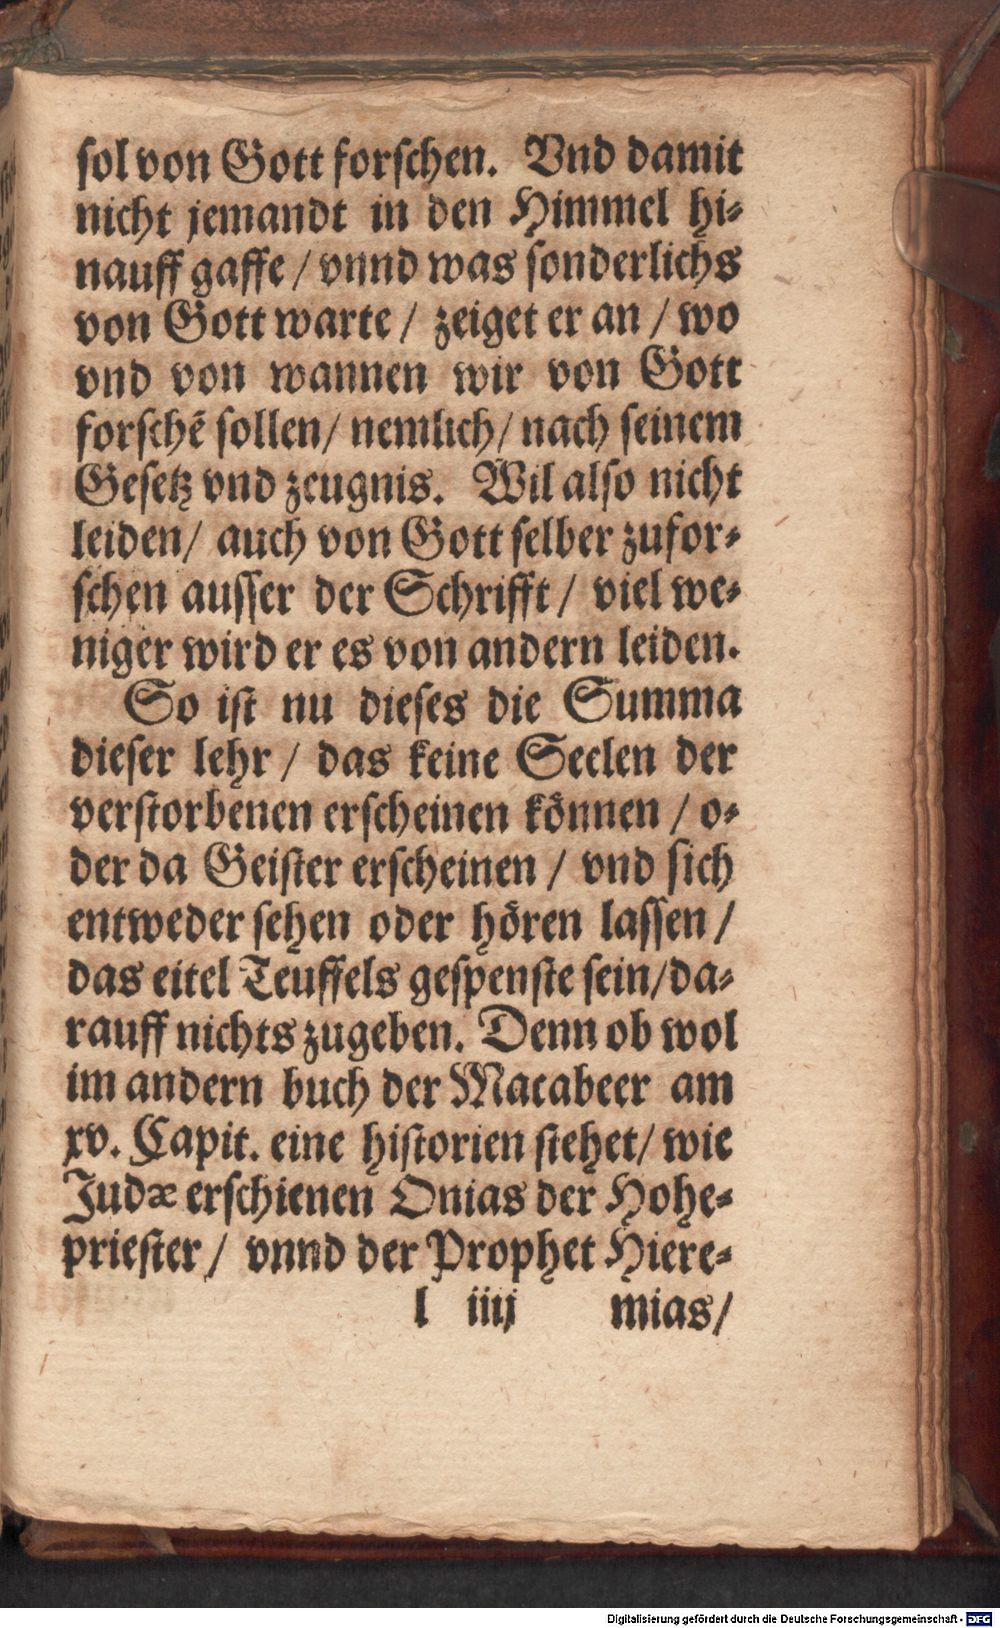 sol von Gott forschen. Vnd damit
nicht jemandt in den Himmel hi-
nauff gaffe / vnnd was sonderlichs
von Gott warte / zeiget er an / wo
vnd von wannen wir von Gott
forschẽ sollen / nemlich / nach seinem
Gesetz vnd zeugnis. Wil also nicht
leiden / auch von Gott selber zufor-
schen ausser der Schrifft / viel we-
niger wird er es von andern leiden.
So ist nu dieses die Summa
dieser lehr / das keine Seelen der
verstorbenen erscheinen können / o-
der da Geister erscheinen / vnd sich
entweder sehen oder hören lassen /
das eitel Teuffels gespenste sein / da-
rauff nichts zugeben. Denn ob wol
im andern buch der Macabeer am
xv. Capit. eine historien stehet / wie
Judæ erschienen Onias der Hohe-
priester / vnnd der Prophet Hiere-
l iiij mias /
Digitalisierung gefördert durch die Deutsche Forschungsgemeinschaft - DFG